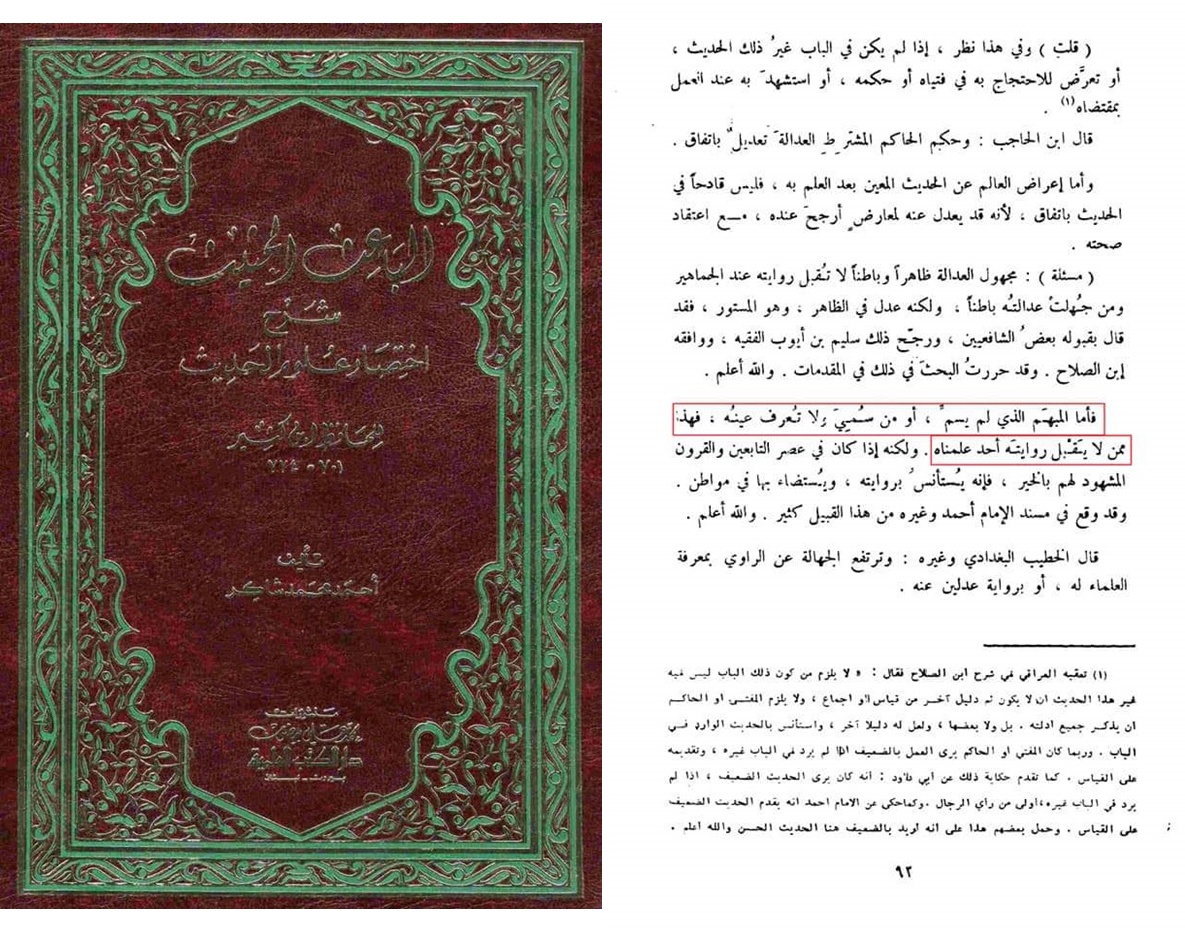 الباعث الحثيث
شرح
اختصار علوم الحديث
للحافظ ابن كثير
٧٠١ - ٧٧٤
تأليف
أحمد محمد شاكر
منشورات
دار الكتب العلمية
بيروت - لبنان
( قلت ) وفي هذا نظر ، إذا لم يكن في الباب غيرُ ذلك الحديث ،
أو تعرَّض للاحتجاج به في فتياه أو حكمه ، أو استشهدَ به عند العمل
بمقتضاه (١) .
قال ابن الحاجب : وحكم الحاكم المشترِطِ العدالةَ تعديلٌ باتفاق .
وأما إعراض العالم عن الحديث المعين بعد العلم به ، فليس قادحاً في
الحديث باتفاق ، لأنه قد يعدل عنه لمعارضٍ أرجحَ عنده ، مع اعتقاد
صحته .
( مسئلة ) : مجهول العدالة ظاهراً وباطناً لا تُقبل روايته عند الجماهير
ومن جُهلتْ عدالتُه باطناً ، ولكنه عدل في الظاهر ، وهو المستور ، فقد
قال بقبوله بعضُ الشافعيين ، ورجّح ذلك سليم بن أيوب الفقيه ، ووافقه
إبن الصلاح . وقد حررتُ البحثَ في ذلك في المقدمات . والله أعلم .
فأما المبهَم الذي لم يسمَّ ، أو من سُمِيَ ولا تُعرف عينُه ، فهذا
ممن لا يَقْبل روايتَه أحد علمناه . ولكنه إذا كان في عصر التابعين والقرون
المشهود لهم بالخير ، فإنه يُستأنسُ بروايته ، ويُستضاء بها في مواطن .
وقد وقع في مسند الإمام أحمد وغيره من هذا القبيل كثير . والله أعلم .
قال الخطيب البغدادي وغيره : وترتفع الجهالة عن الراوي بمعرفة
العلماء له ، أو برواية عدلين عنه .
(١) تعقبه العراقي في شرح ابن الصلاح فقال : « لا يلزم من كون ذلك الباب ليس فيه
غير هذا الحديث ان لا يكون ثم دليل آخر من قياس او اجماع ، ولا يلزم المفتى او الحاكم
ان يذكر جميع ادلته . بل ولا بعضها ، ولعل له دليلا آخر ، واستأنس بالحديث الوارد في
الباب . وربما كان المفتي او الحاكم يرى العمل بالضعيف اذا لم يرد في الباب غيره ، وتقديمه
على القياس . كما تقدم حكاية ذلك عن أبي داود : أنه كان يرى الحديث الضعيف ، اذا لم
يرد في الباب غيره، أولى من رأي الرجال . وكما حكى عن الامام احمد انه يقدم الحديث الضعيف
على القياس . وحمل بعضهم هذا على انه اريد بالضعيف هنا الحديث الحسن والله أعلم .
٩٢